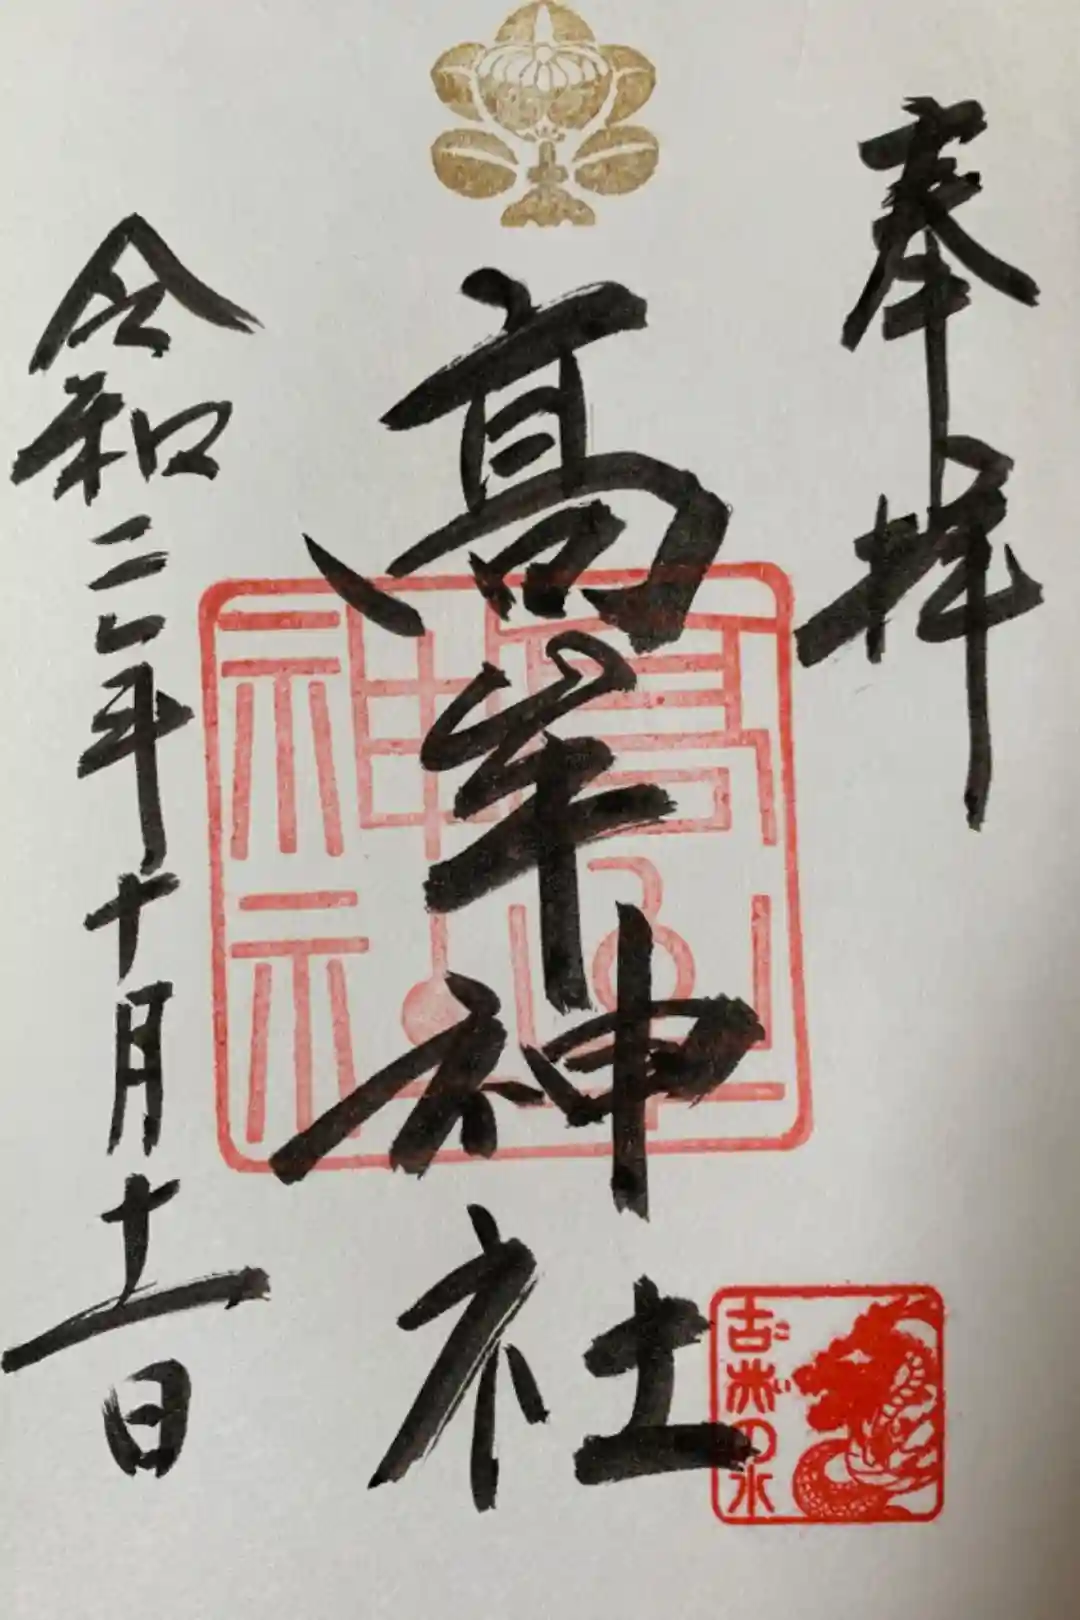 奉拝
高牟神社
高牟神社
古井の水
令和二年十月十一日